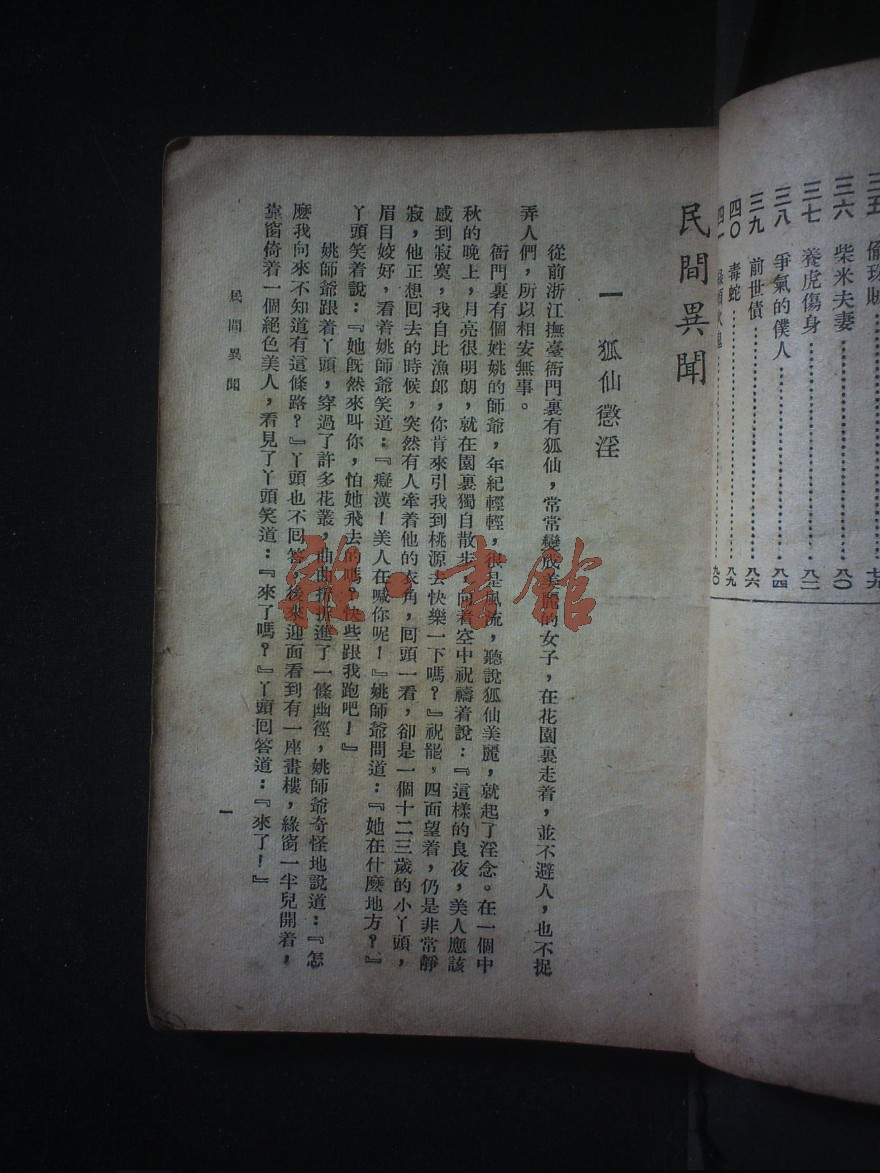 三六 柴米夫妻…………八〇
三七 養虎傷身…………八二
三八 爭氣的僕人…………八四
三九 前世債…………八六
四〇 毒蛇…………八九
民間異聞
一 狐仙懲淫
從前浙江撫臺衙門裏有狐仙，常常變成美麗的女子，在花園裏走着，並不避人，也不捉
弄人們，所以相安無事。
衙門裏有個姓姚的師爺，年紀輕輕，很是風流，聽說狐仙美麗，就起了淫念。在一個中
秋的晚上，月亮很明朗，就在園裏獨自散步，向着空中祝禱着說：『這樣的良夜，美人應該
感到寂寞，我自比漁郎，你肯來引我到桃源去快樂一下嗎？』祝罷，四面望着，仍是非常靜
寂，他正想回去的時候，突然有人牽着他的衣角，回頭一看，卻是一個十二三歲的小丫頭，
眉目姣好，看着姚師爺笑道：『癡漢！美人在喊你呢！』姚師爺問道：『她在什麽地方？』
丫頭笑着說：『她旣然來叫你，怕她飛去的嗎？快些跟我跑吧！』
姚師爺跟着丫頭，穿過了許多花叢，曲曲折折進了一條幽徑，姚師爺奇怪地說道：『怎
麽我向來不知道有這條路？』丫頭也不回答，後來迎面看到有一座畫樓，綠窗一半兒開着，
靠窗倚着一個絕色美人，看見了丫頭笑道：『來了嗎？』丫頭回答道：『來了！』
民間異聞
一
雜·書館